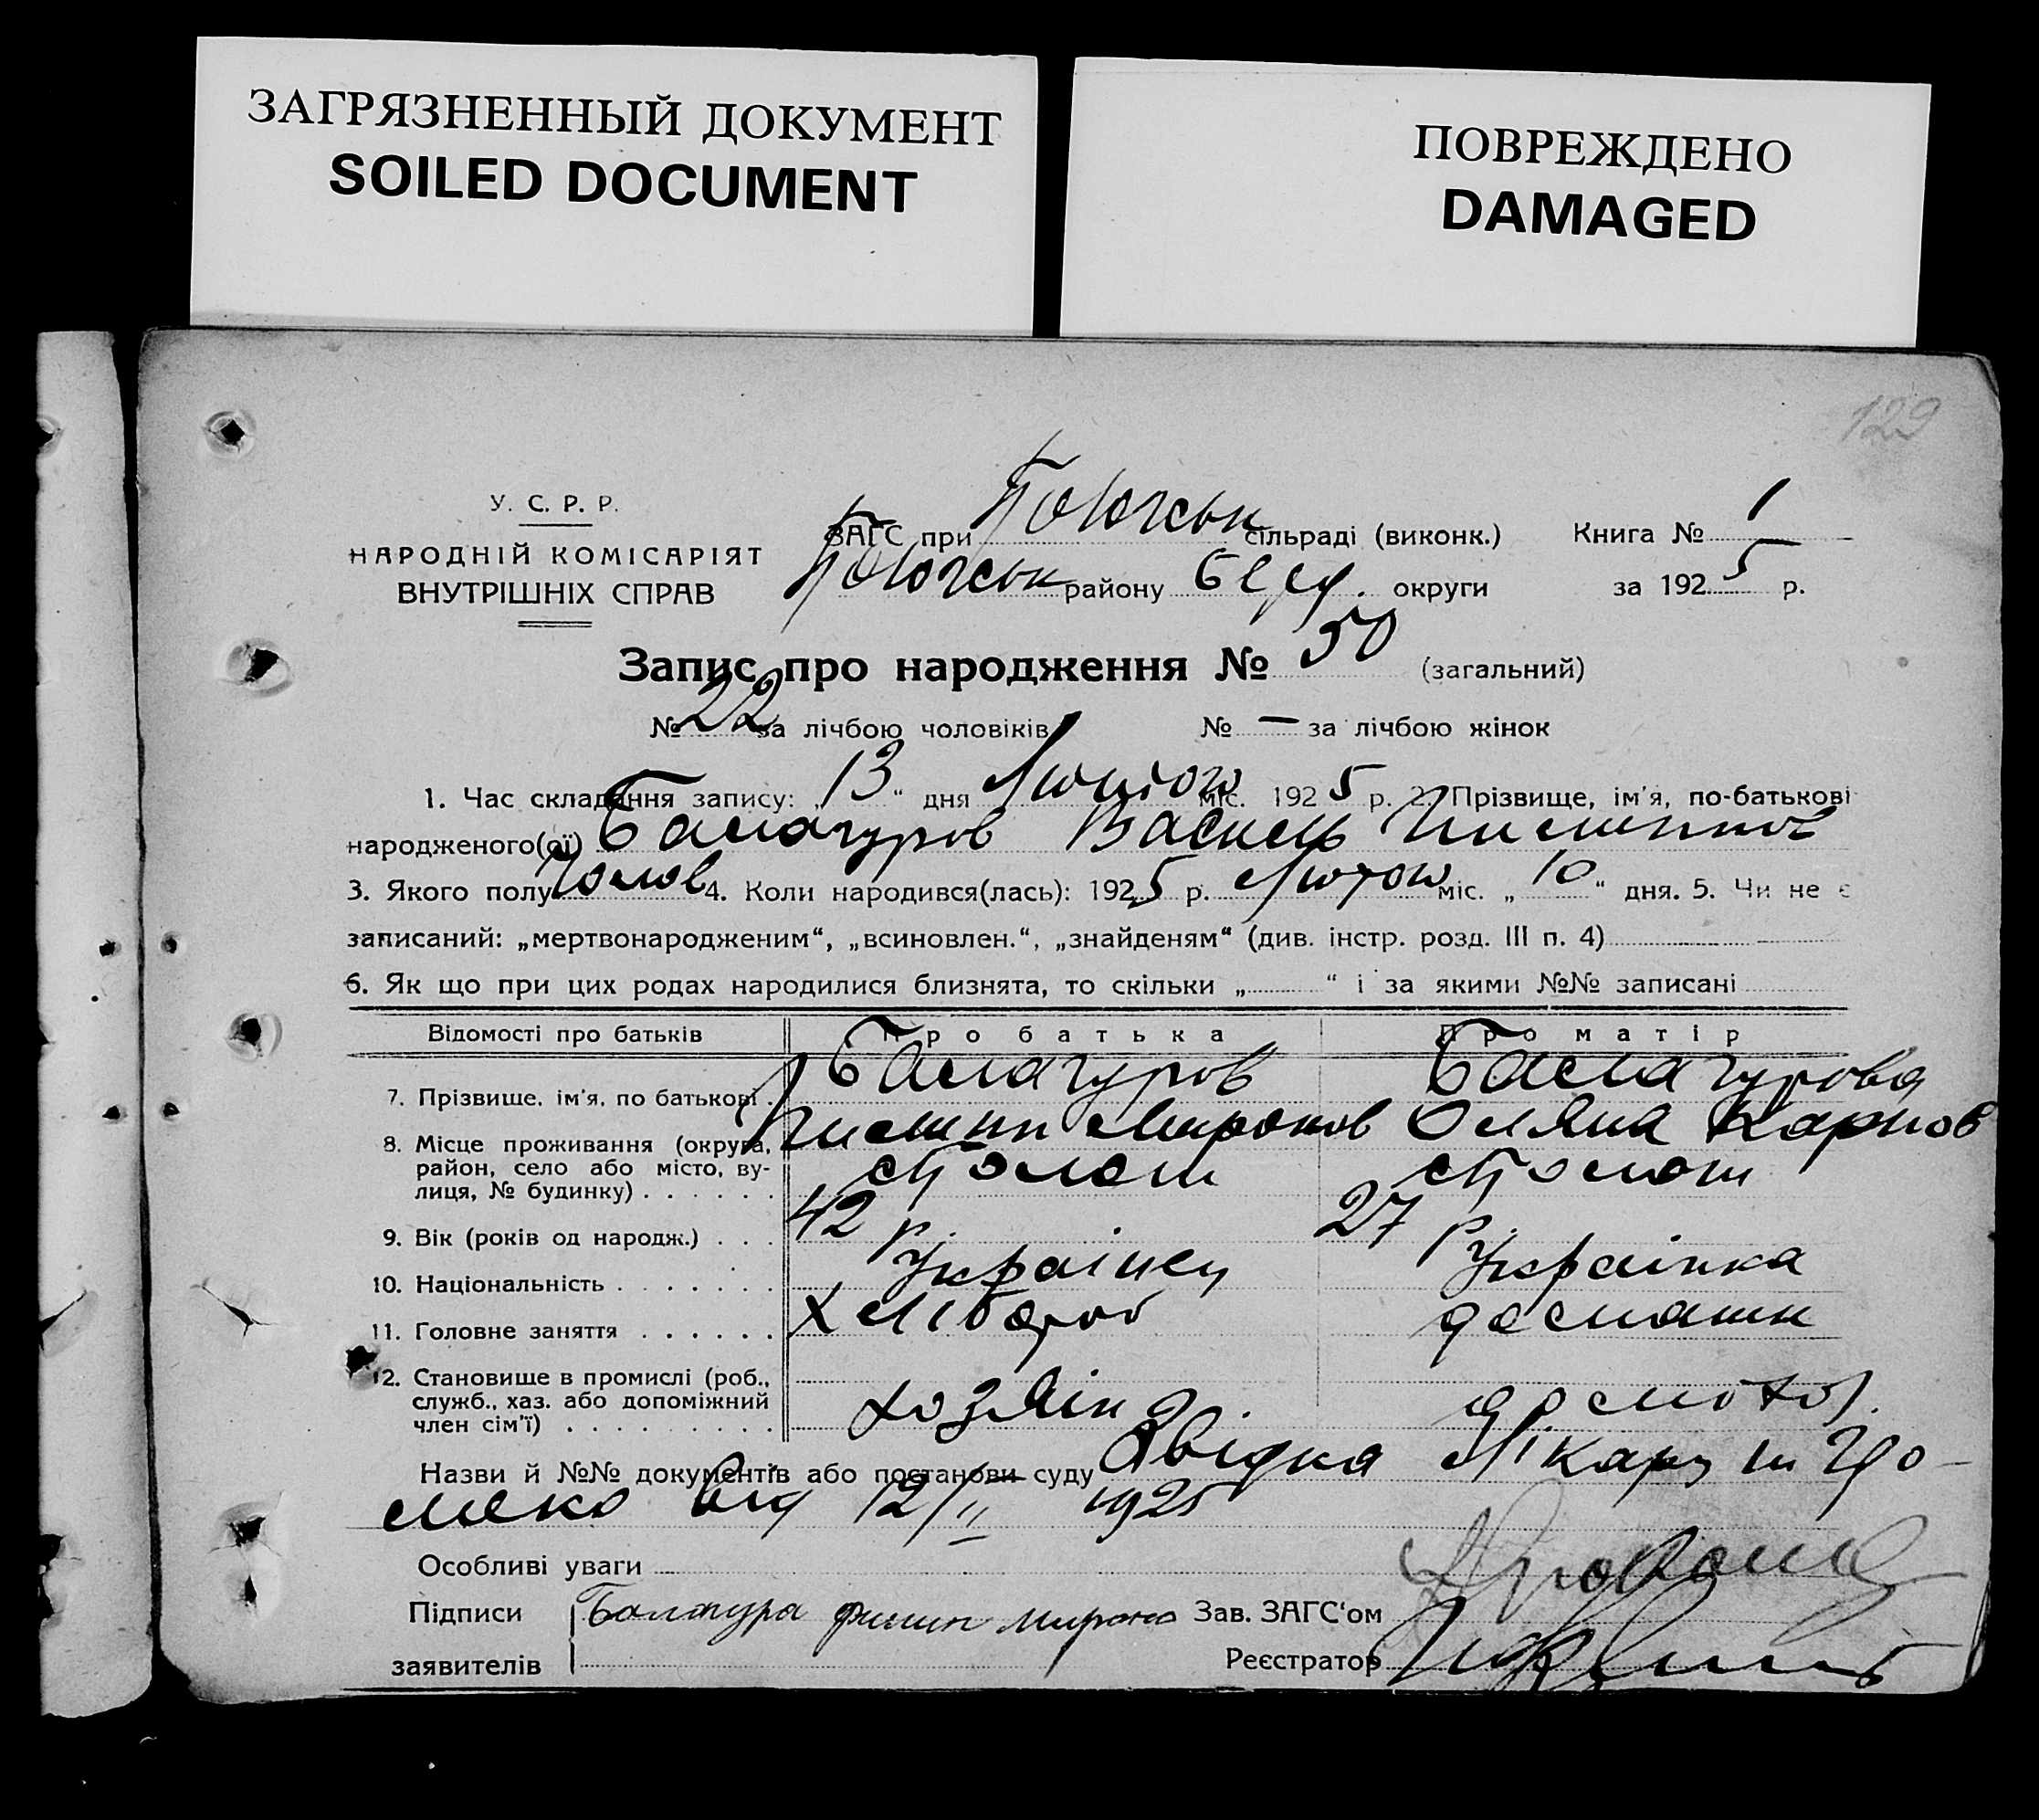 ЗАГРЯЗНЕННЫЙ ДОКУМЕНТ
SOILED DOCUMENT
ПОВРЕЖДЕНО
DAMAGED
129
У. С. Р. Р.
НАРОДНІЙ КОМІСАРІЯТ
ВНУТРІШНІХ СПРАВ
ЗАГС при сільраді (виконк.) Книга № 1
району округи за 1925 р.
Запис про народження № 50 (загальний)
№ 22 за лічбою чоловіків № — за лічбою жінок
1. Час складання запису: „13“ дня Лютого міс. 1925 р. 2. Прізвище, ім'я, по-батькові
народженого(ої) Балагуров Василь
3. Якого полу Чолов 4. Коли народився(лась): 1925 р. Лютого міс. „10“ дня. 5. Чи не є
записаний: „мертвонародженим“, „всиновлен.“, „знайденям“ (див. інстр. розд. III п. 4)
6. Як що при цих родах народилися близнята, то скільки „ “ і за якими №№ записані
Відомості про батьків Про батька Про матір
7. Прізвище, ім'я, по батькові . Балагуров Балагурова
Миронов Оляна Карпов
8. Місце проживання (округа,
район, село або місто, ву-
лиця, № будинку) . . . . . .
9. Вік (років од народж.) . . . 42 р. 27 р.
10. Національність . . . . . . . Українец Українка
11. Головне заняття . . . . . . Хлібороб домашн
12. Становище в промислі (роб.,
служб., хаз. або допоміжний
член сім'ї) . . . . . . . . . хозяїн домохоз.
Назви й №№ документів або постанови суду Звідка Лікару
від 12/II 1925
Особливі уваги
Підписи Балагура Филип Мирона Зав. ЗАГС'ом
заявителів Реєстратор